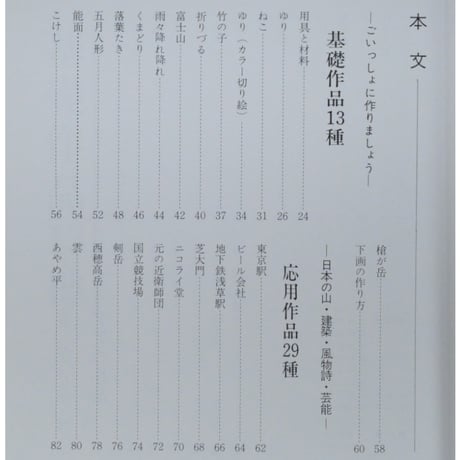 本文
―ごいっしょに作りましょう―
基礎作品13種
用具と材料 24
ゆり 26
ねこ 31
ゆり(カラー切り絵) 34
竹の子 37
折りづる 40
富士山 42
雨々降れ降れ 44
くまどり 46
落葉たき 48
五月人形 52
能面 54
こけし 56
槍が岳 58
下画の作り方 60
―日本の山・建築・風物詩・芸能―
応用作品29種
東京駅 62
ビール会社 64
地下鉄浅草駅 66
芝大門 68
ニコライ堂 70
元の近衛師団 72
国立競技場 74
剣岳 76
西穂高岳 78
雲 80
あやめ平 82